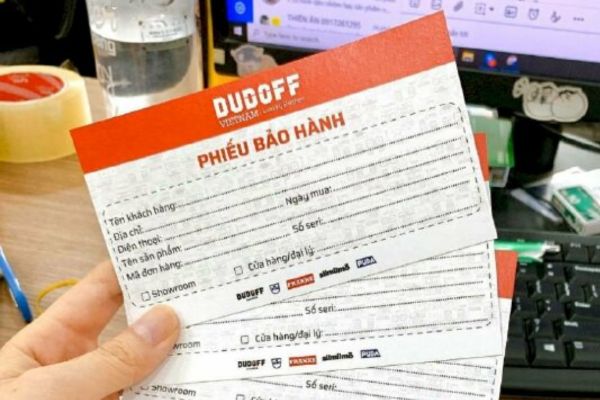 THIÊN ÂN 0917261295
DUDOFF
VIETNAM
PHIẾU BẢO HÀNH
Tên khách hàng:
Địa chỉ: Ngày mua:
Điện thoại:
Tên sản phẩm: Số seri:
Mã đơn hàng:
Showroom Cửa hàng/đại lý:
DUDOFF FRANKE
Số seri:
Showroom Cửa hàng/đại lý:
DUDOFF FRANKE
Số seri:
Showroom Cửa hàng/đại lý: